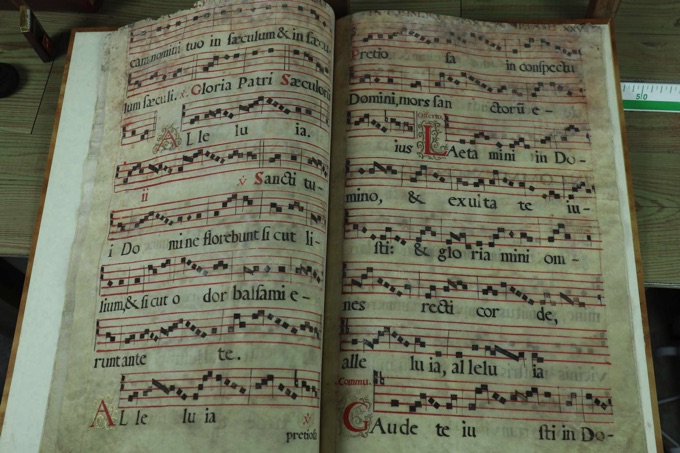 cam nomini tuo in sæculum & in sæcu-
lum sæculi. ℣. Gloria Patri Sæculorū
ALle lu ia.
ii ℣ Sancti tu-
i Do mi ne florebunt si cut li-
lium, & si cut o dor balsami e-
runt ante te.
ALle lu ia ℣
pretiosa
Pretio sa in conspectu
Domini, mors san ctorū e-
ius LAeta mini in Do-
mino, & exulta te iu-
sti: & glo ria mini om-
nes recti cor de,
alle lu ia, al lelu ia
Commu.
GAude te iu sti in Do-
50